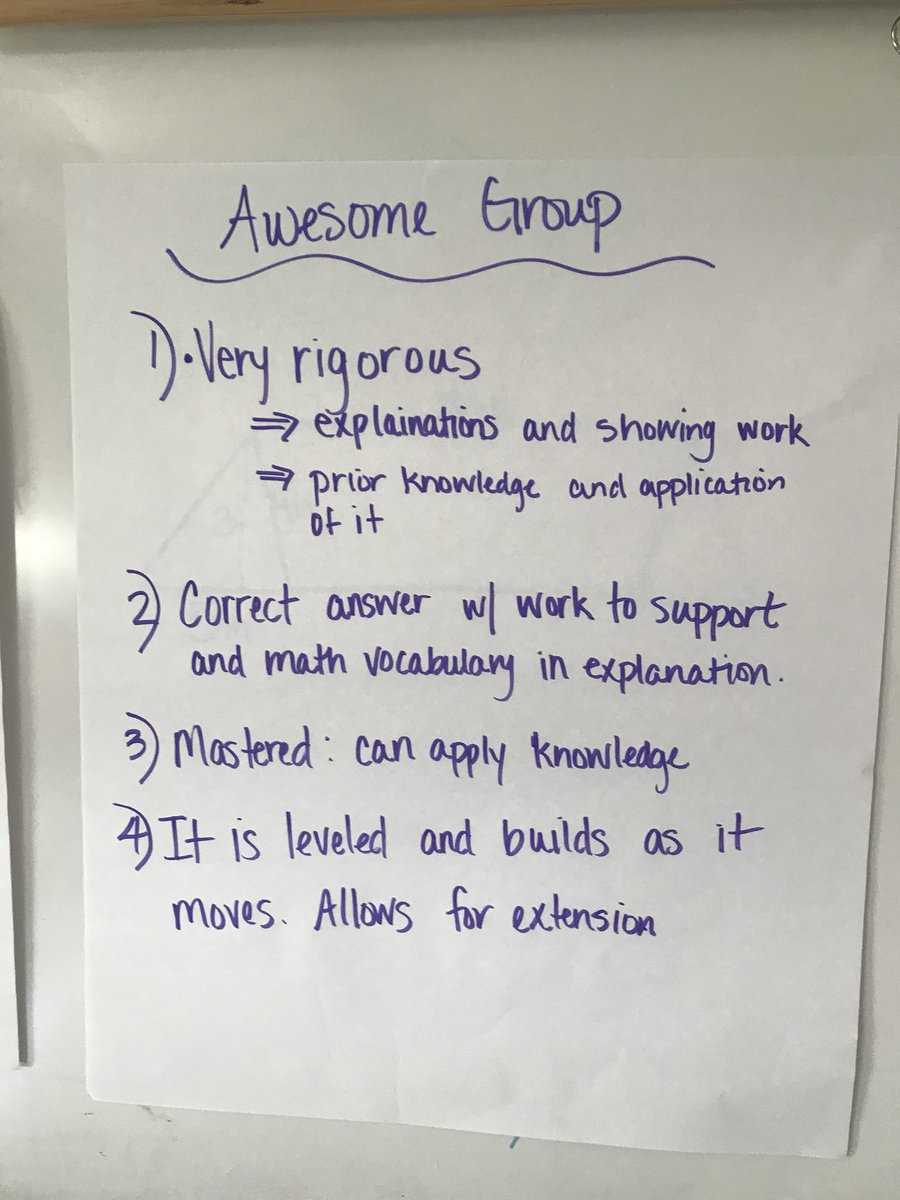 Awesome Group
1) • Very rigorous
⇒ explainations and showing work
⇒ prior knowledge and application
of it
2) Correct answer w/ work to support
and math vocabulary in explanation.
3) Mastered: can apply knowledge
4) It is leveled and builds as it
moves. Allows for extension